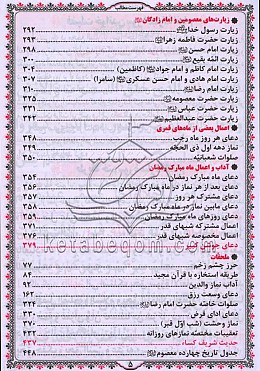 فهرست مطالب
زیارت‌های معصومین و امام زادگان
زیارت رسول خدا ۲۹۲
زیارت حضرت فاطمه زهرا ۲۹۳
زیارت امام حسن ۲۹۸
زیارت ائمّه بقیع ۳۰۰
زیارت امام کاظم و امام جواد (کاظمین) ۳۰۴
زیارت امام هادی و امام حسن عسکری (سامرا) ۳۰۷
زیارت امام رضا ۳۱۰
زیارت حضرت معصومه ۳۲۵
زیارت حضرت عباس ۳۳۱
زیارت حضرت عبدالعظیم ۳۴۲
اعمال بعضی از ماه‌های قمری
دعای هر روز ماه رجب ۳۴۸
نماز دهه اول ذی الحجه ۳۴۹
صلوات شعبانیّه ۳۵۰
آداب و اعمال ماه مبارک رمضان
دعای ماه مبارک رمضان ۳۵۴
دعای بعد از هر نماز در ماه مبارک رمضان ۳۵۶
دعای مشترک هر روز ۳۵۷
دعای مابین نماز در ماه مبارک رمضان ۳۵۸
دعای روزهای ماه مبارک رمضان ۳۵۹
اعمال مشترکه شبهای قدر ۳۷۱
اعمال مخصوصه شبهای قدر ۳۷۶
دعای جوشن ۳۷۹
ملحقات
حرز چشم زخم ۷۷
طریقه استخاره با قرآن مجید ۸۴
آداب نماز والدین ۹۲
دعای وسعت رزق ۱۶۲
صلوات خاصّه حضرت امام رضا ۳۲۴
دعای ادای قرض ۳۳۰
نماز وحشت (شب اول قبر) ۳۷۰
تعقیبات مختصّه نمازهای روزانه ۴۳۳
حدیث شریف کساء ۴۳۷
جدول تاریخ چهارده معصوم ۴۴۸
۵
ketabeqom.com